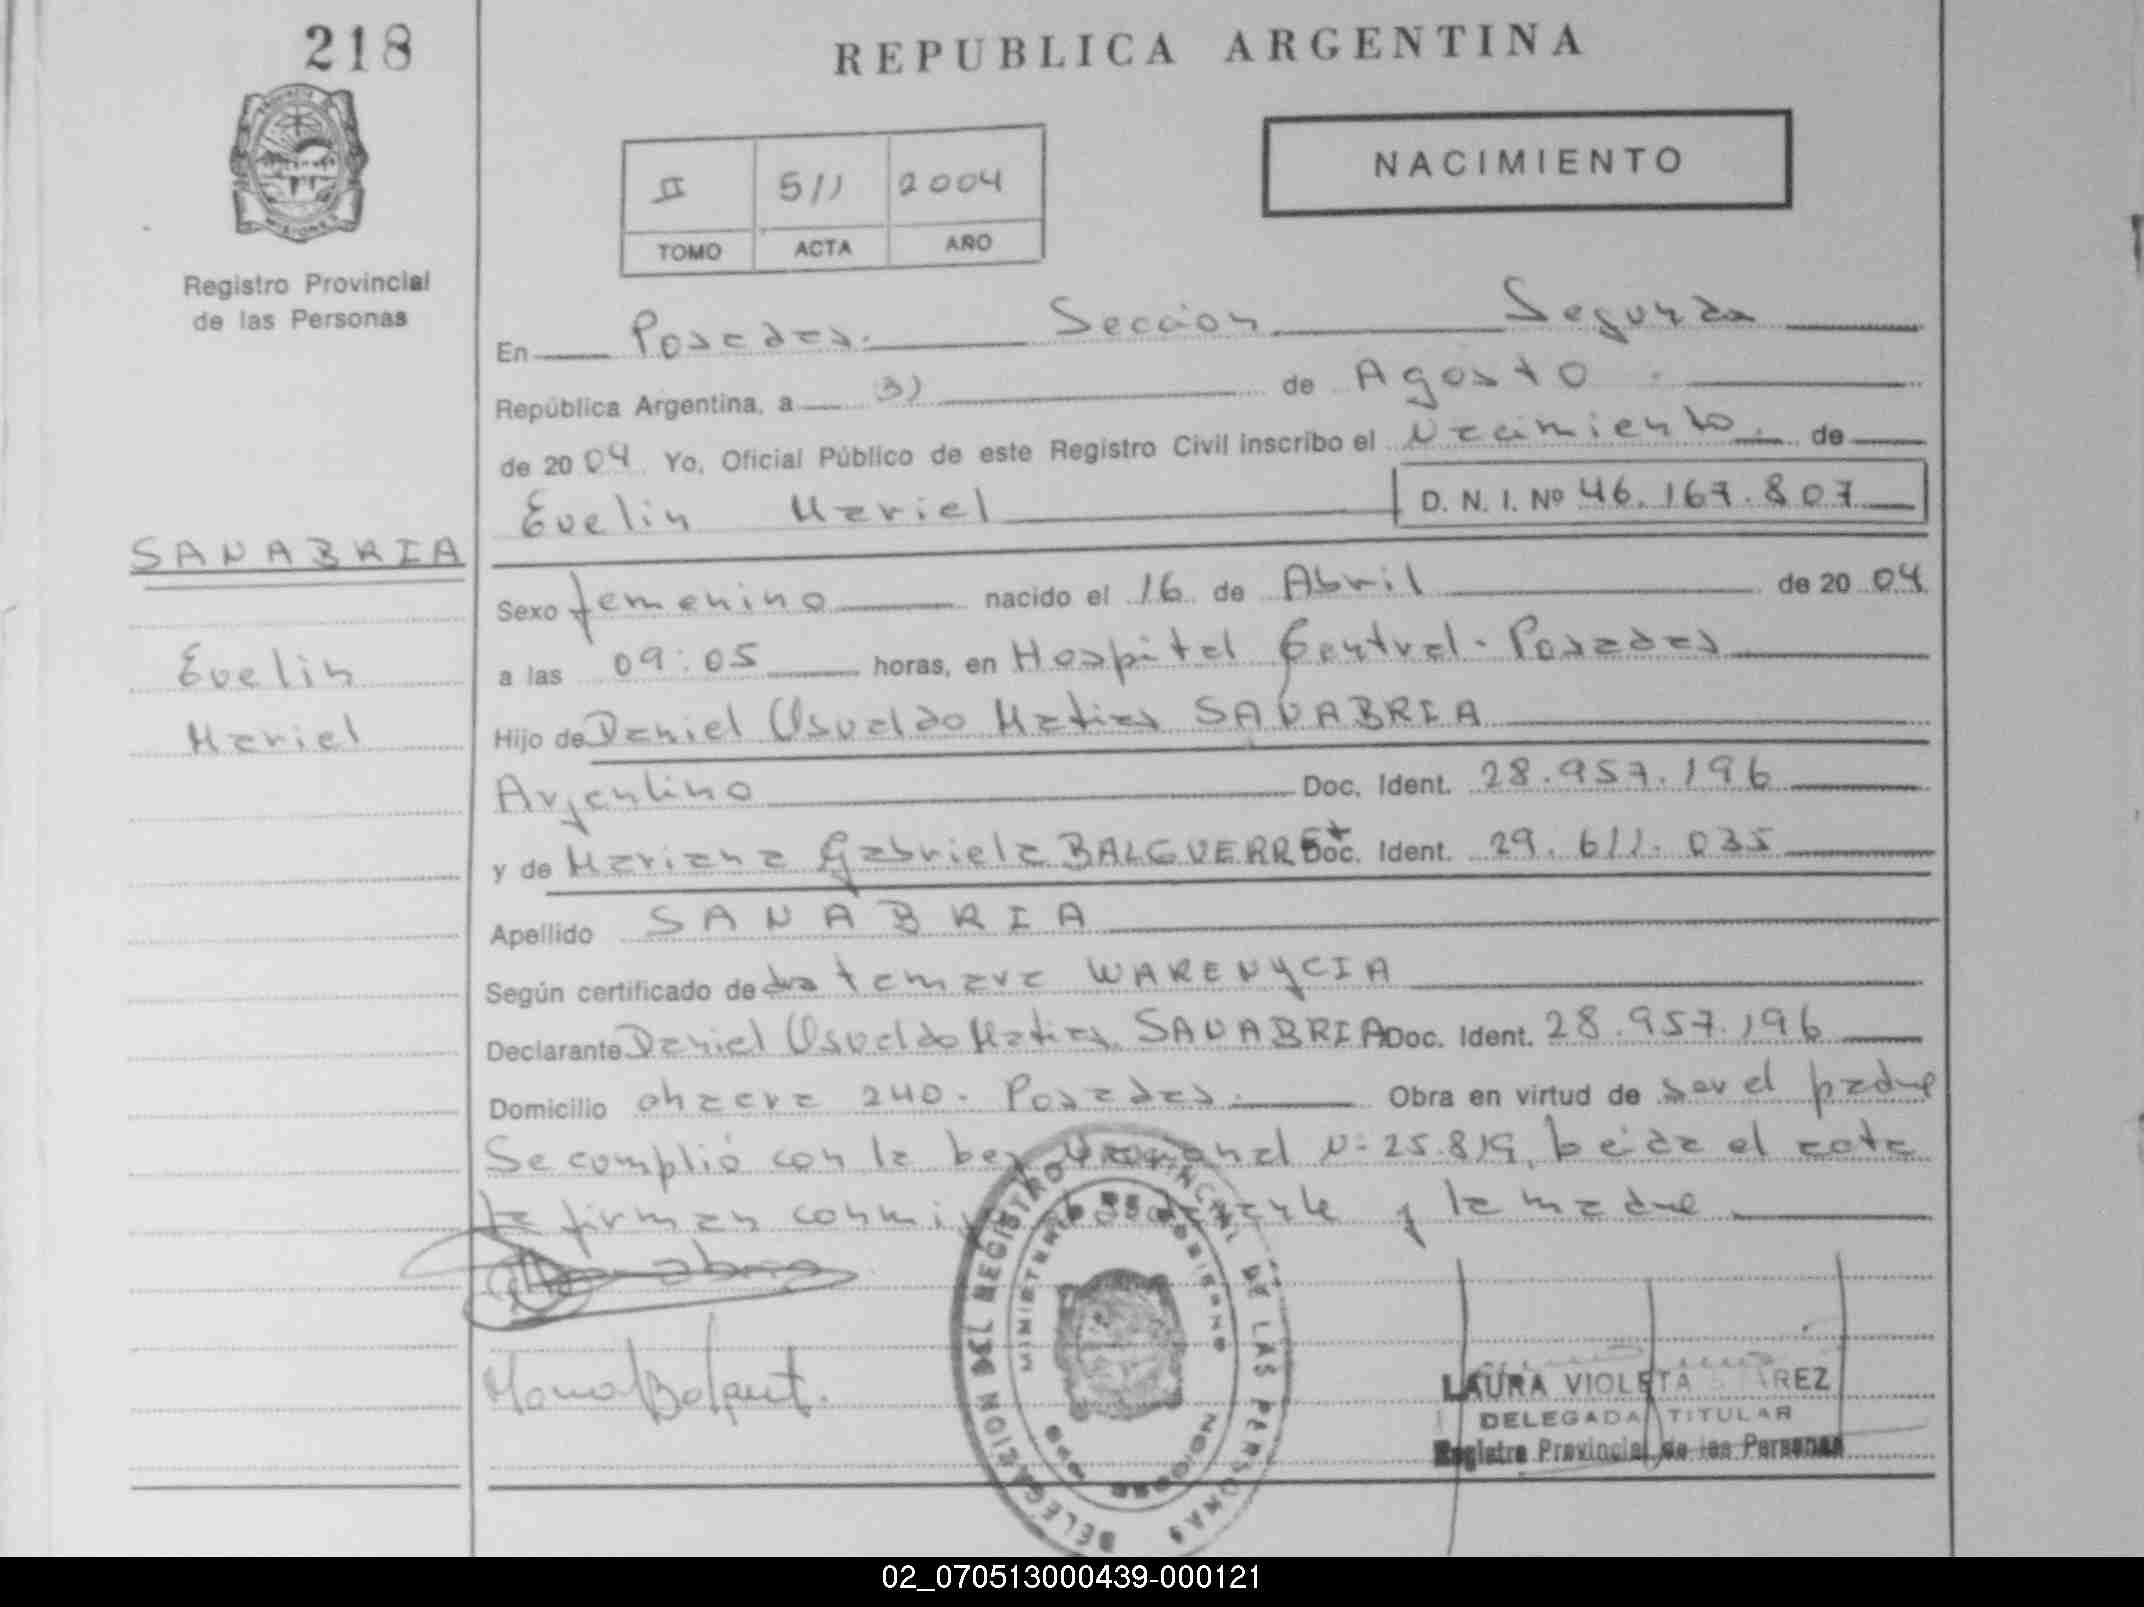 218
REPUBLICA ARGENTINA
NACIMIENTO
II 511 2004
TOMO ACTA AÑO
Registro Provincial
de las Personas
En Posadas. Sección Segunda
República Argentina, a 31 de Agosto
de 2004 Yo, Oficial Público de este Registro Civil inscribo el Nacimiento de
Evelin Mariel D. N. I. Nº 46.167.807
SANABRIA
Sexo femenino nacido el 16 de Abril de 2004
Evelin
a las 09:05 horas, en Hospital Central - Posadas
Mariel
Hijo de Daniel Osvaldo Matias SANABRIA
Argentino Doc. Ident. 28.957.196
y de Mariana Gabriela Doc. Ident. 29.611.035
Apellido SANABRIA
Según certificado de dra tamara WARENYCIA
Declarante Daniel Osvaldo Matias SANABRIA Doc. Ident. 28.957.196
Domicilio ohaera 240. Posadas. Obra en virtud de ser el padre
Se cumplió con la Ley Nacional Nº 25.819, Leida el acta
la firman y la madre
DELEGACION DEL REGISTRO PROVINCIAL DE LAS PERSONAS
MINISTERIO DE GOBIERNO
LAURA VIOLETA
DELEGADA TITULAR
Registro Provincial de las Personas
02_070513000439-000121